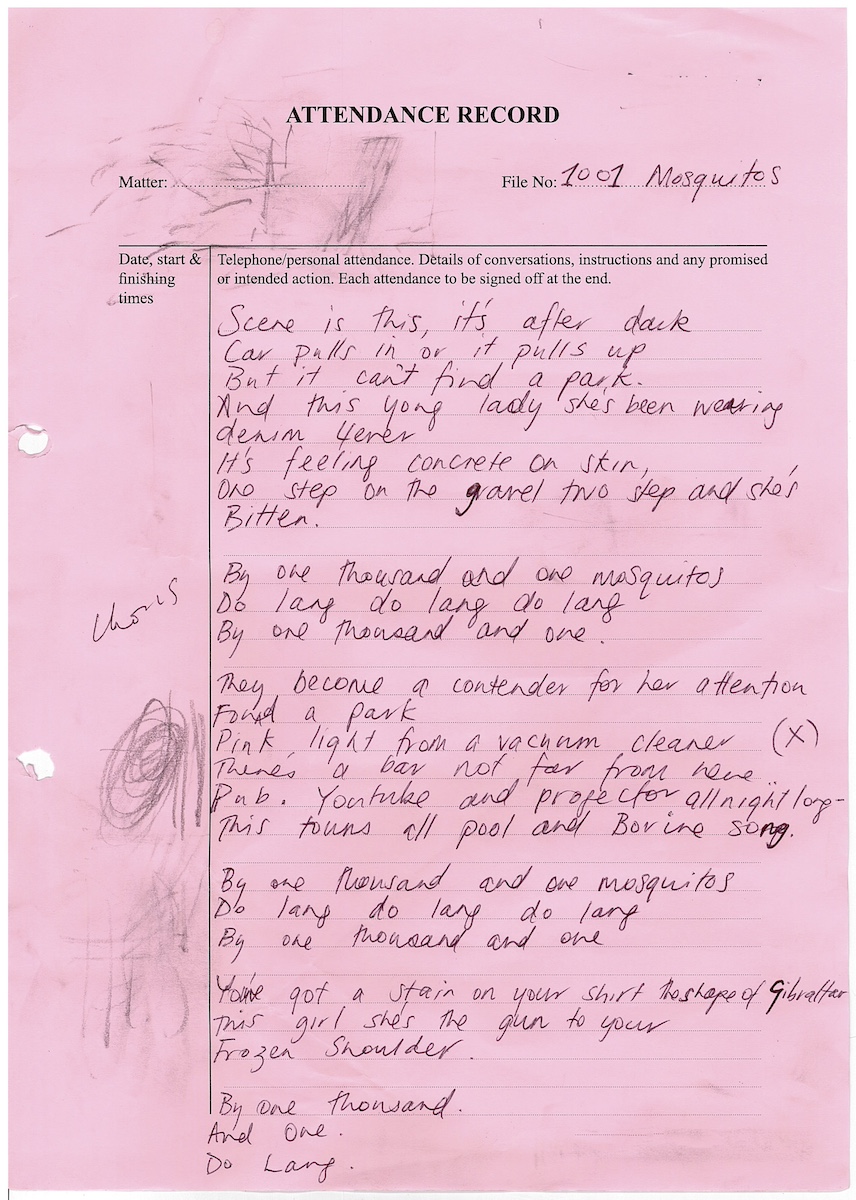 ATTENDANCE RECORD
Matter:
File No: 1001 Mosquitos
Date, start & finishing times
Telephone/personal attendance. Details of conversations, instructions and any promised
or intended action. Each attendance to be signed off at the end.
Scene is this, it's after dark
Car pulls in or it pulls up
But it can't find a park.
And this yong lady she's been wearing
denim 4ever
It's feeling concrete on skin,
One step on the gravel two step and she's
Bitten.
By one thousand and one mosquitos
Chorus
Do lang do lang do lang
By one thousand and one.
They become a contender for her attention
Found a park
Pink light from a vacuum cleaner (X)
There's a bar not far from here
Pub. Youtube and projector all night long-
This touns all pool and Bovine song.
By one thousand and one mosquitos
Do lang do lang do lang
By one thousand and one
You've got a stain on your shirt the shape of Gibraltar
This girl she's the gun to your
Frozen Shoulder.
By one thousand.
And one.
Do Lang.